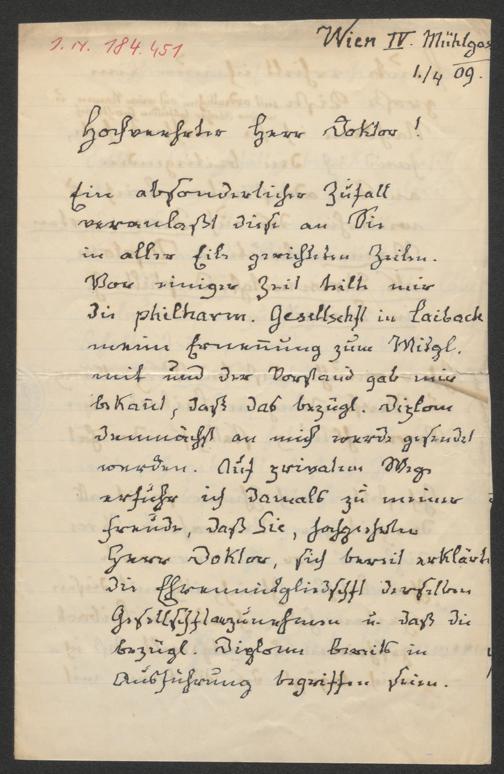 I.N. 184.451
Wien IV. Mühlgas
1./4 09.
Hochverehrter Herr Doktor!
Ein absonderlicher Zufall
veranlaßt diese an Sie
in aller Eile gerichteten Zeilen.
Vor einiger Zeit teilte mir
die philharm. Gesellschft in Laibach
meine Ernennung zum Mitgl.
mit und der Vorstand gab mir
bekannt, daß das bezügl. Diplom
demnächst an mich werde gesendet
werden. Auf privatem Wege
erfuhr ich damals zu meiner
Freude, daß Sie, hochgeehrter
Herr Doktor, sich bereit erklärte
die Ehrenmitgliedschft derselben
Gesellschft anzunehmen u. daß die
bezügl. Diplome bereits in
Ausführung begriffen seien.